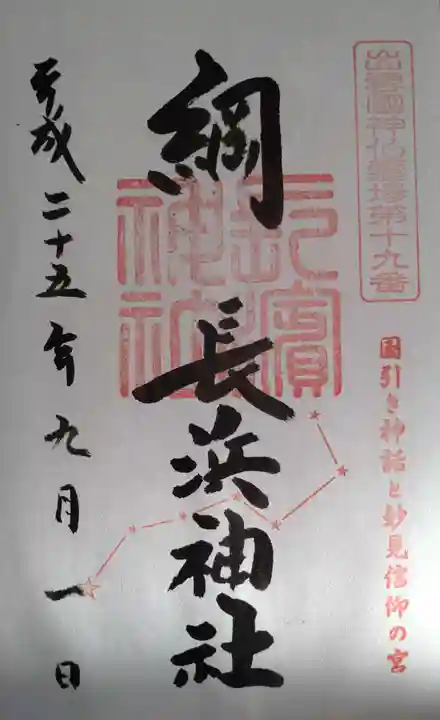 出雲國神仏霊場第十九番
國引き神話と妙見信仰の宮
綱
長浜神社
長濱神社
平成二十五年九月一日